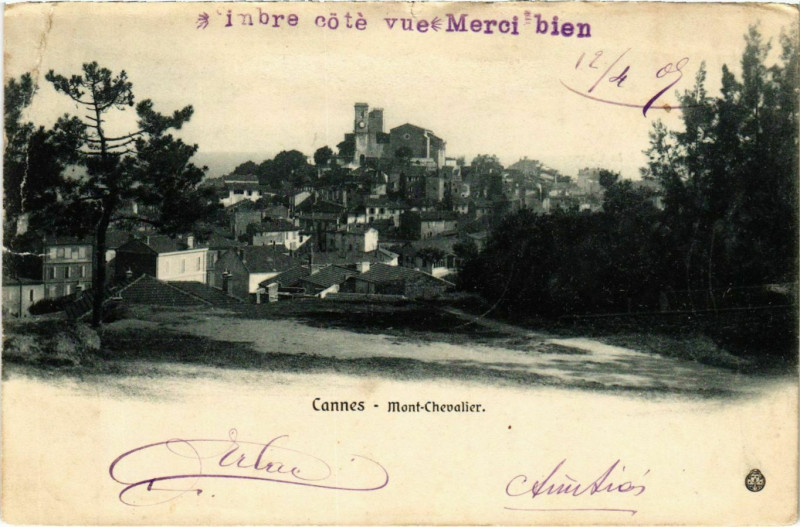 imbre côtè vue Merci bien
12/4 05
Cannes - Mont-Chevalier.
Amitiés